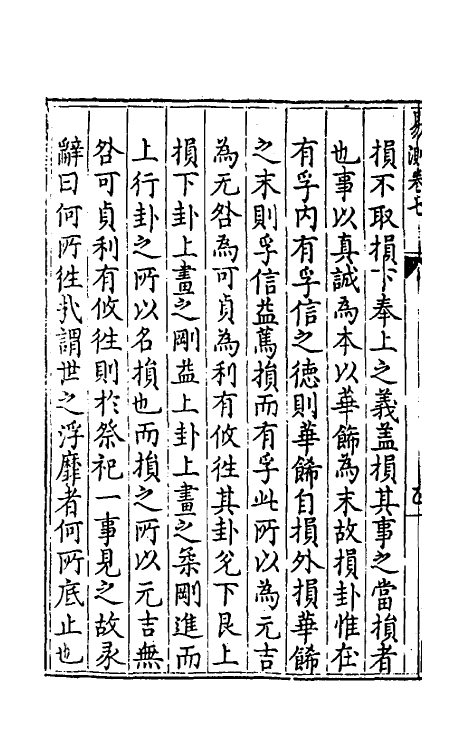 易測卷七
損不取損下奉上之義蓋損其事之當損者
也事以真誠為本以華飾為末故損卦惟在
有孚内有孚信之德則華餙自損外損華餙
之末則孚信益篤損而有孚此所以為元吉
為无咎為可貞為利有攸往其卦兊下艮上
損下卦上畫之剛益上卦上畫之柔剛進而
上行卦之所以名損也而損之所以元吉無
咎可貞利有攸往則於祭祀一事見之故彖
辭曰何所往㢤謂世之浮靡者何所底止也